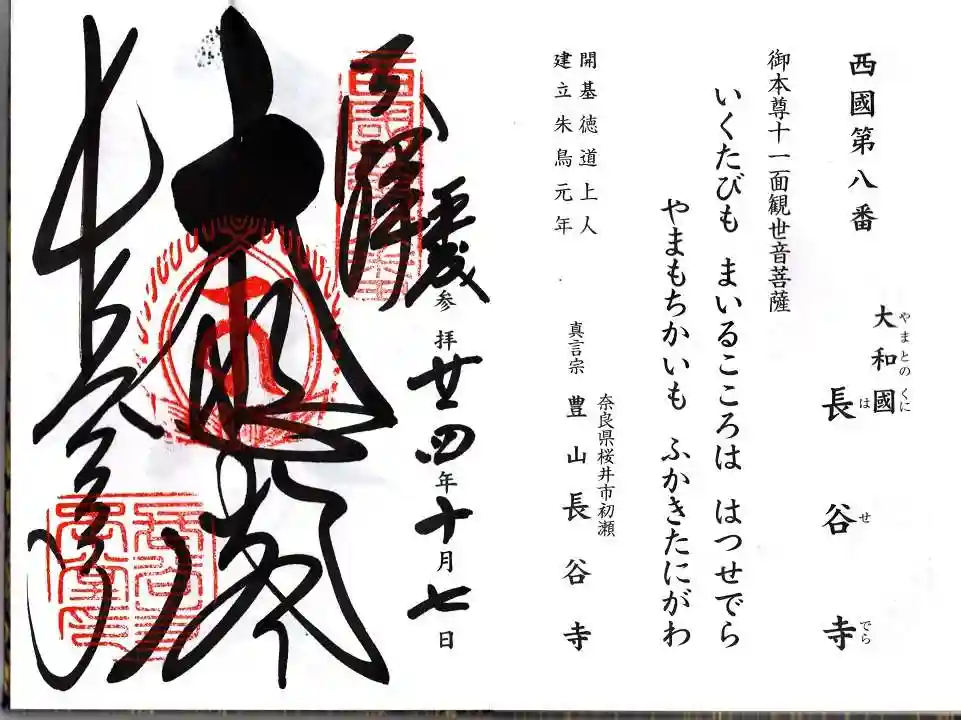 西國第八番
大和國
やまとの くに
長谷寺
は せ でら
御本尊十一面観世音菩薩
いくたびも まいるこころは はつせでら
やまもちかいも ふかきたにがわ
開基徳道上人
建立朱鳥元年
奈良県桜井市初瀬
真言宗 豊山長谷寺
奉拝
平成
参拝 廿四年十月七日
大悲閣
長谷寺